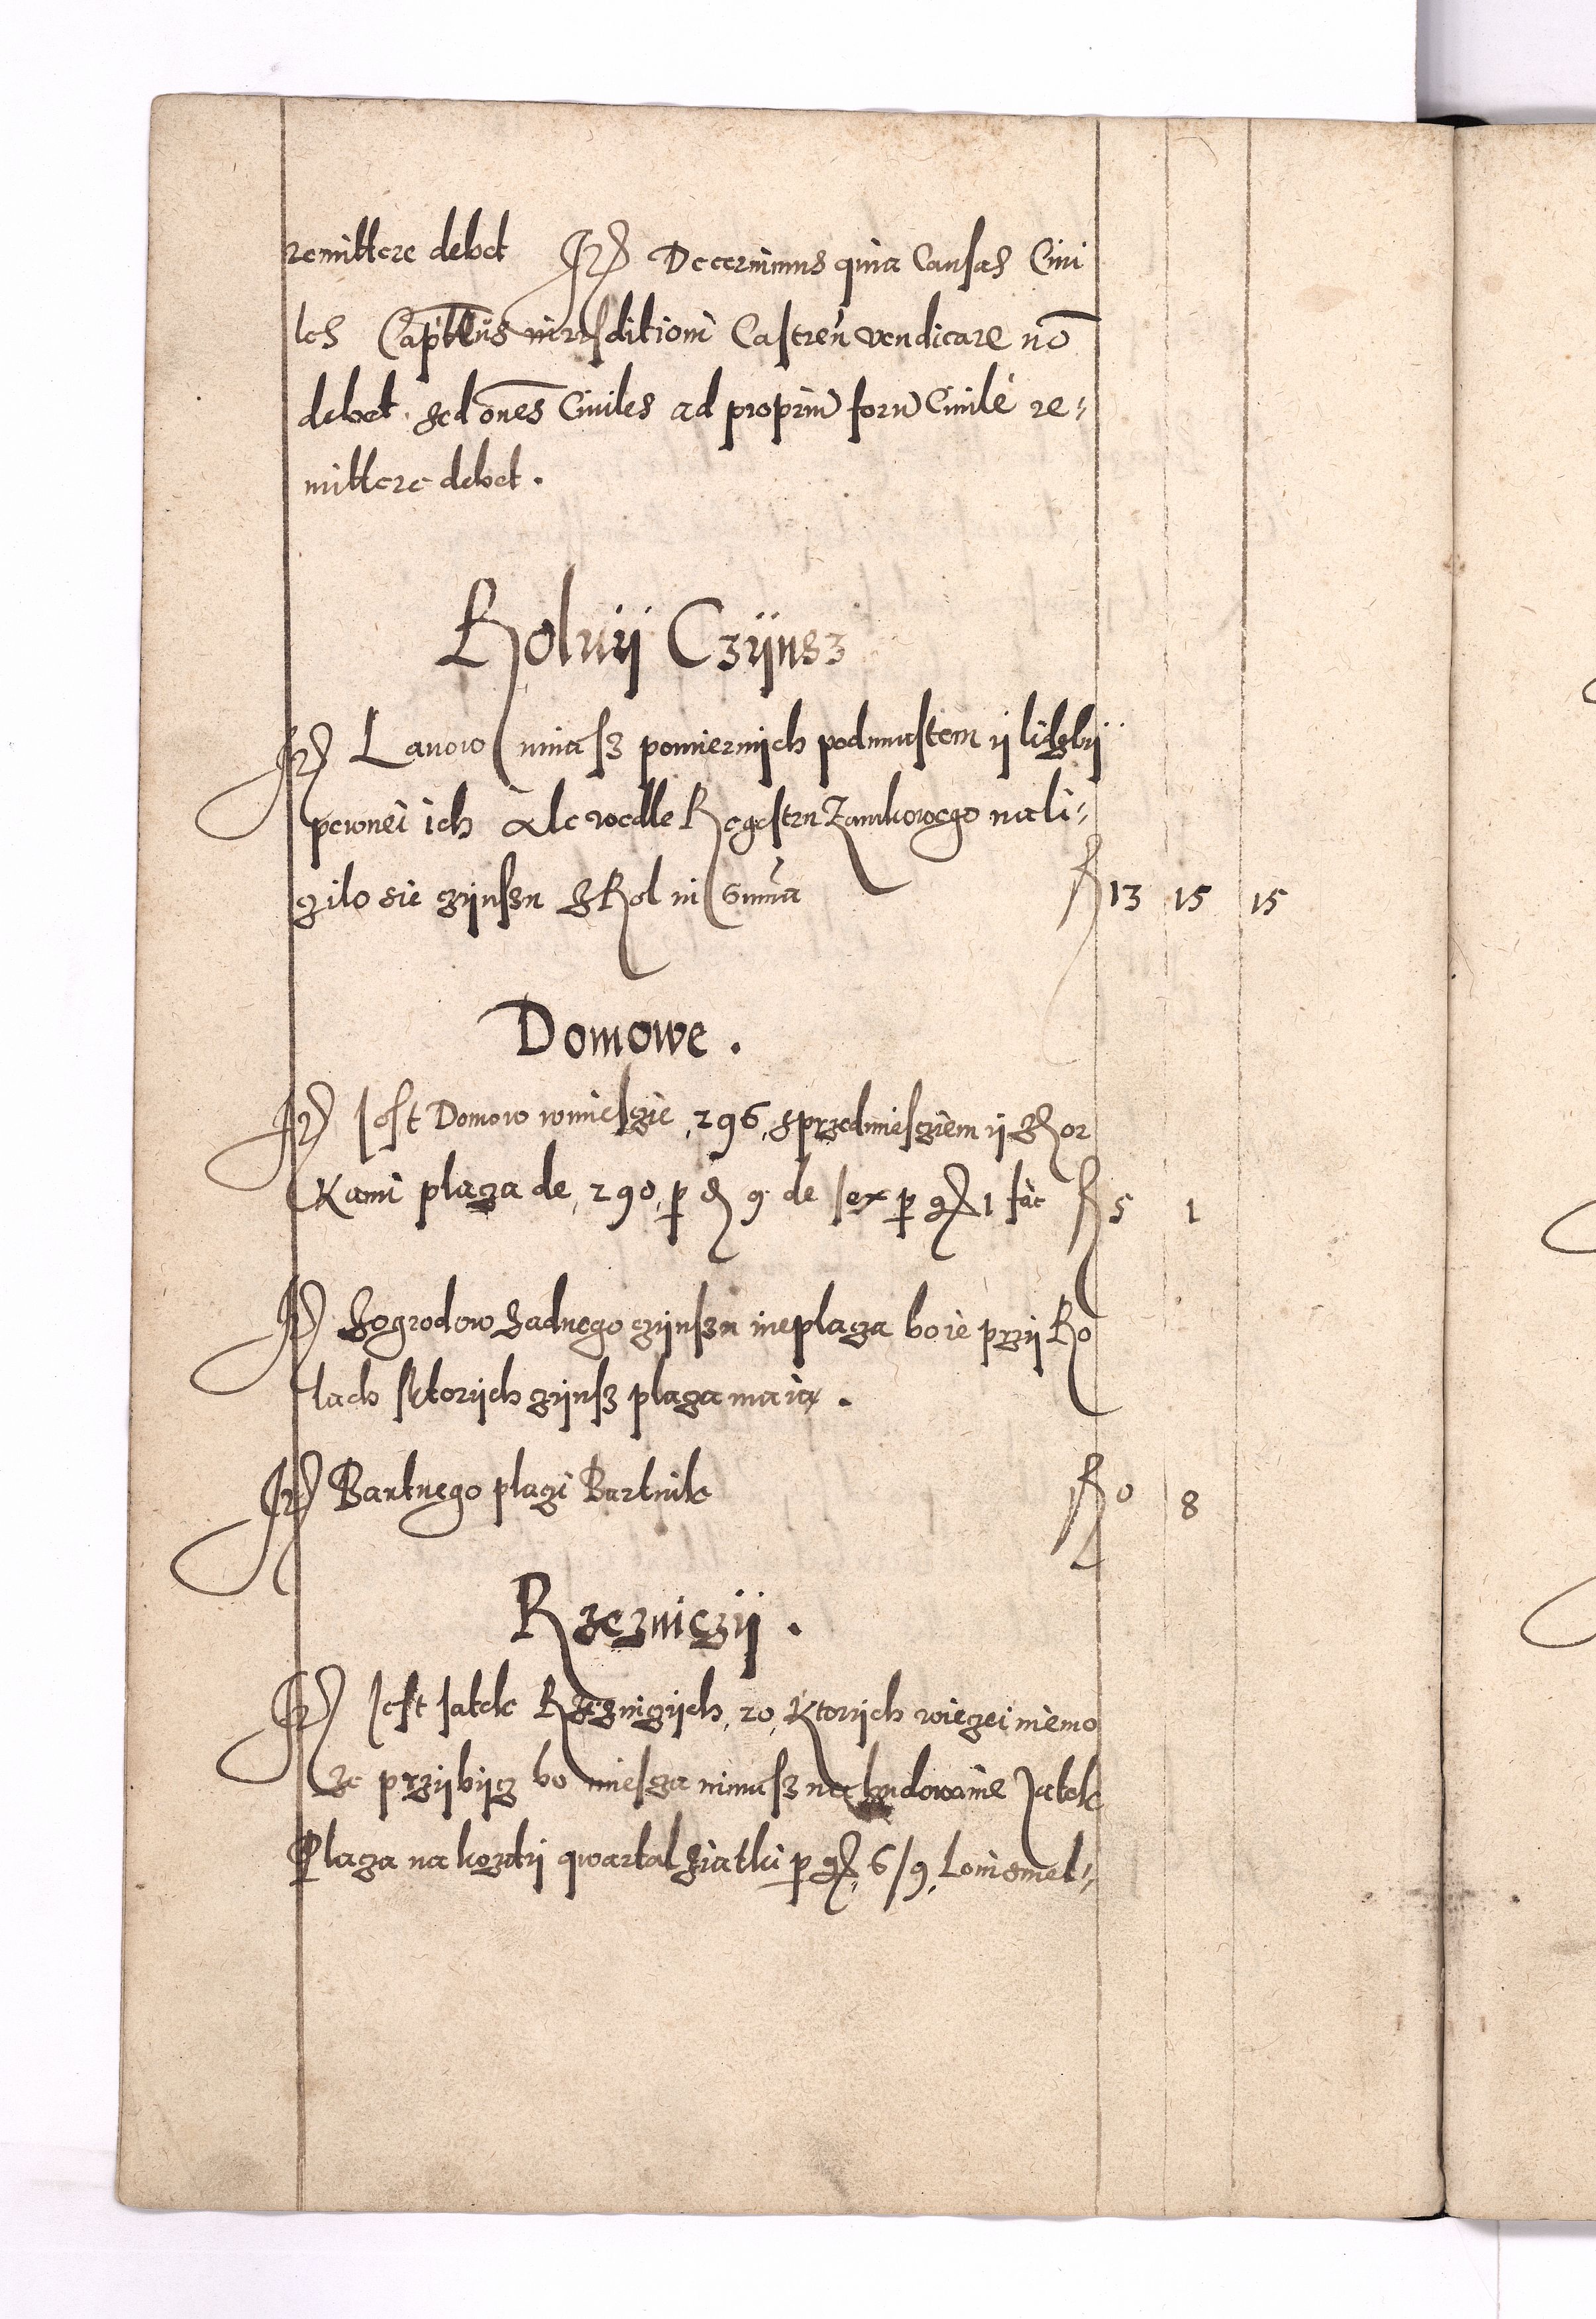 remittere debet It̃ Decernimus quia Causas Civi
les Capt̃neus iurisditioni Castreñ vendicare nõ
debet sed oñes Civiles ad propriũ forũ Civilẽ re-
mittere debet.
Rolnÿ Czÿnsz
It̃ Lanow niiasz pomiernÿch pod miastem ÿ liczbÿ
pewnei ich Ale wedle Regestru Zamkowego nali-
czilo sie czÿnszu z Rol in Sum̃a f 13 15 15
Domowe.
It̃ Jest Domow w miesczie, 296, z przedmiesczięm ÿ z Hor
kami placza de, 290, p d 9 de sex p gr 1 fac̃ f 5 1
It̃ Zogrodow zadnego czÿnszu nieplacza bo ie przÿ Ro
lach sktorÿch czÿnsz placza maią.
It̃ Bartnego placzi Bartnik f 0 8
Rzezniczÿ.
It̃ Jest Jatek Rzezniczÿch, 20, Ktorÿch wieczei niemo
ze przÿbÿcz bo miesza nimasz na budowanie Jatek
Placza na kozdÿ qwartal z iatki p gr, 6/9, Loiu smal-